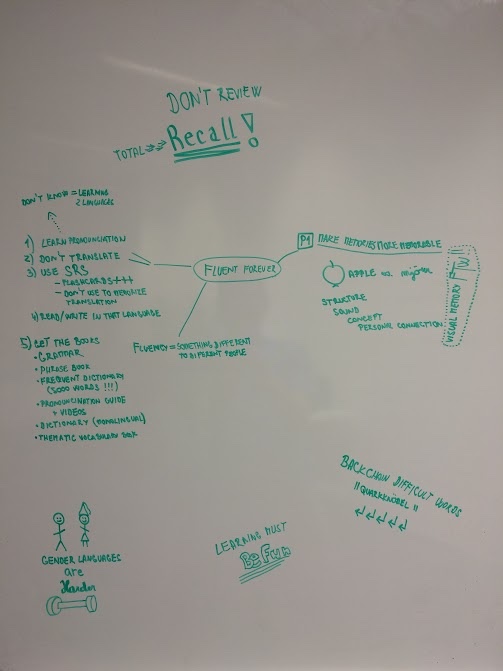 DON'T REVIEW
TOTAL Recall!
DON'T KNOW = LEARNING
2 LANGUAGES
1) LEARN PRONOUNCIATION
2) DON'T TRANSLATE
3) USE SRS
- FLASHCARDS +++
- DON'T USE TO MEMORIZE
TRANSLATION
4) READ/WRITE IN THAT LANGUAGE
5) GET THE BOOKS
• GRAMMAR
• PHRASE BOOK
• FREQUENT DICTIONARY
(5000 WORDS !!!)
• PRONOUNCINATION GUIDE
+ VIDEOS
• DICTIONARY (MONOLINGUAL)
• THEMATIC VOCABULARY BOOK
FLUENT FOREVER
FLUENCY = SOMETHING DIFFERENT
TO DIFFERENT PEOPLE
P1 MAKE MEMORIES MORE MEMORABLE
APPLE vs.
STRUCTURE
SOUND
CONCEPT
PERSONAL CONNECTION
VISUAL MEMORY
BACKCHAIN DIFFICULT WORDS
"QUARKKNÖBEL"
LEARNING MUST
Be Fun
GENDER LANGUAGES
are
Harder